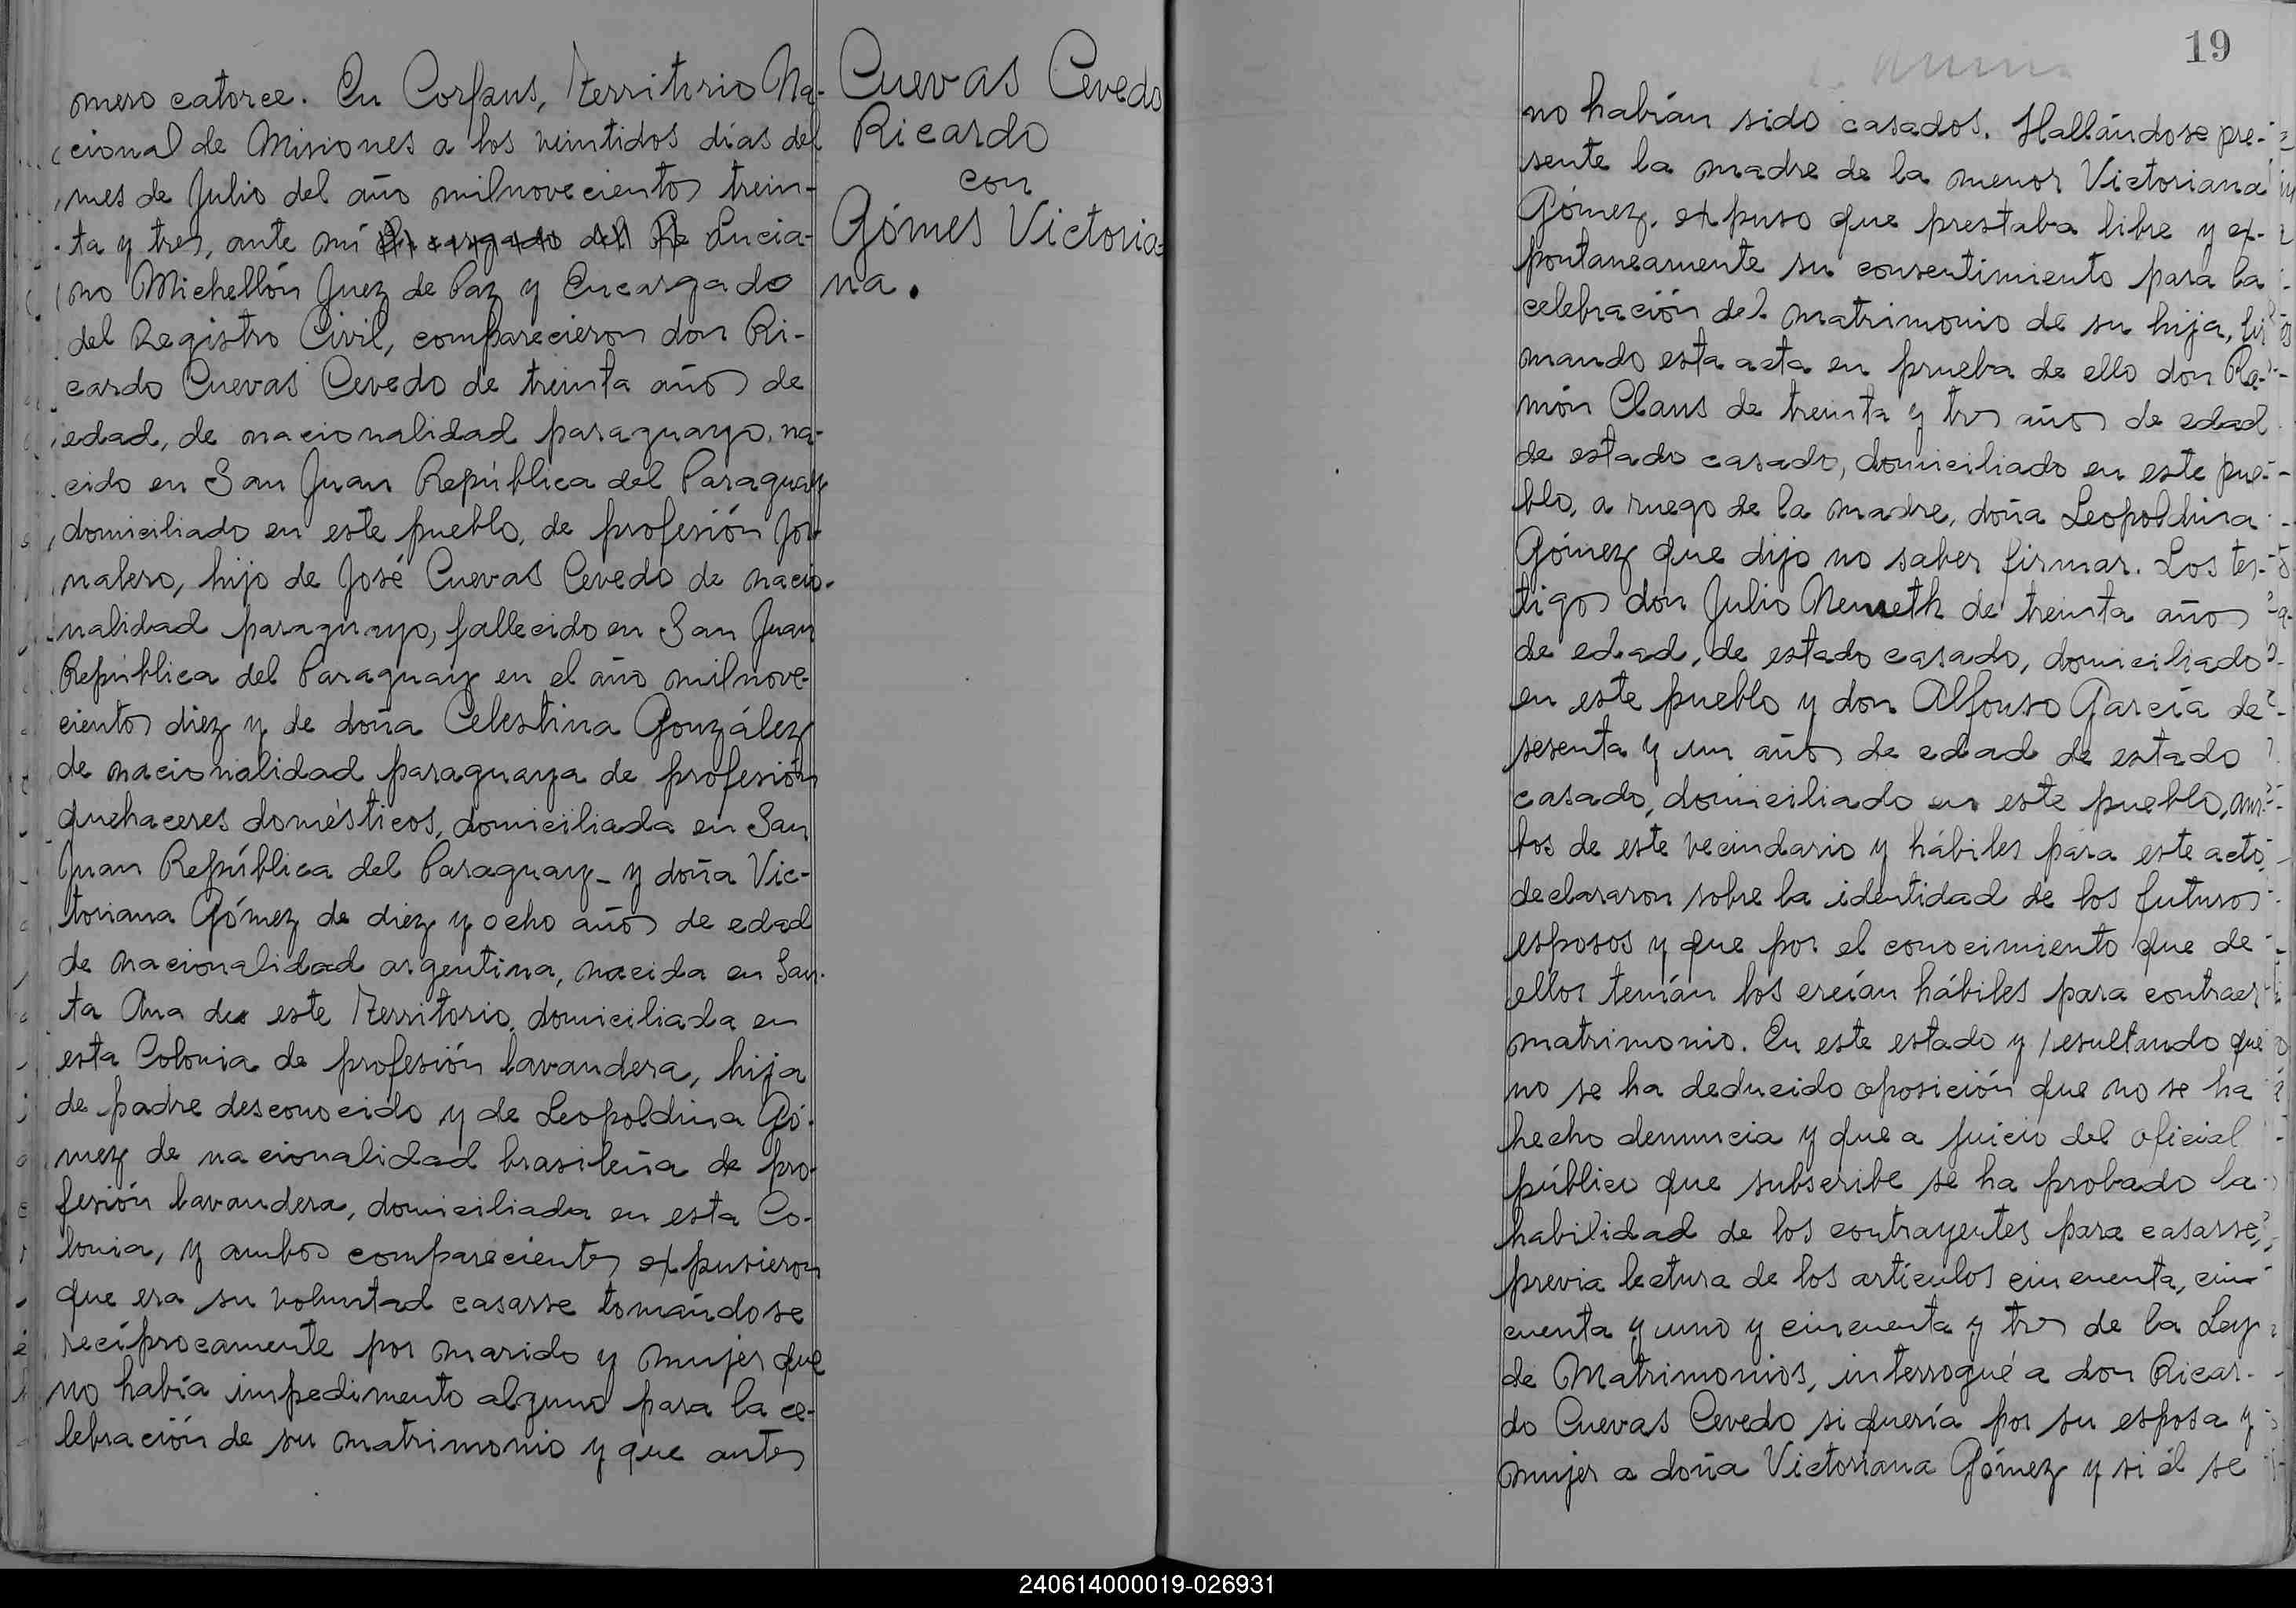 mero catorce. En Corpus, Territorio Na-
cional de Misiones a los veintidos días del
mes de Julio del año milnovecientos trein-
ta y tres, ante mí Encargado del Re Lucia-
no Michellón Juez de Paz y Encargado
del Registro Civil, comparecieron don Ri-
cardo Cuevas Cevedo de treinta años de
edad, de nacionalidad paraguayo, na-
cido en San Juan República del Paraguay
domiciliado en este pueblo, de profesión Jor-
nalero, hijo de José Cuevas Cevedo de nacio-
nalidad paraguayo, fallecido en San Juan
República del Paraguay en el año milnove-
cientos diez y de doña Celestina González
de nacionalidad paraguaya de profesión
quehaceres domésticos, domiciliada en San
Juan República del Paraguay - y doña Vic-
toriana Gómez de diez y ocho años de edad
de nacionalidad argentina, nacida en San-
ta Ana de este Territorio, domiciliada en
esta Colonia de profesión lavandera, hija
de padre desconocido y de Leopoldina Gó-
mez de nacionalidad brasileña de pro-
fesión lavandera, domiciliada en esta Co-
lonia, y ambos comparecientes expusieron
que era su voluntad casarse tomándose
recíprocamente por marido y mujer que
no había impedimento alguno para la ce-
lebración de su matrimonio y que antes
Cuevas Cevedo
Ricardo
con
Gómes Victoria-
na.
19
no habían sido casados. Hallándose pre-
sente la madre de la menor Victoriana
Gómez, expuso que prestaba libre y ex-
pontaneamente su consentimiento para la
celebración del matrimonio de su hija, fir
mando esta acta en prueba de ello don Ra-
món Claus de treinta y tres años de edad
de estado casado, domiciliado en este pue-
blo, a ruego de la madre, doña Leopoldina
Gómez que dijo no saber firmar. Los tes-
tigos don Julio Nemeth de treinta años
de edad, de estado casado, domiciliado
en este pueblo y don Alfonso García de
sesenta y un años de edad de estado
casado, domiciliado en este pueblo, am-
bos de este vecindario y hábiles para este acto,
declararon sobre la identidad de los futuros
esposos y que por el conocimiento que de
ellos tenían los creían hábiles para contraer
matrimonio. En este estado y resultando que
no se ha deducido oposición que no se ha
hecho denuncia y que a juicio del oficial
público que subscribe se ha probado la
habilidad de los contrayentes para casarse,
previa lectura de los artículos cincuenta, cin-
cuenta y uno y cincuenta y tres de la Ley
de Matrimonios, interrogué a don Ricar-
do Cuevas Cevedo si quería por su esposa y
mujer a doña Victoriana Gómez y si él se
240614000019-026931